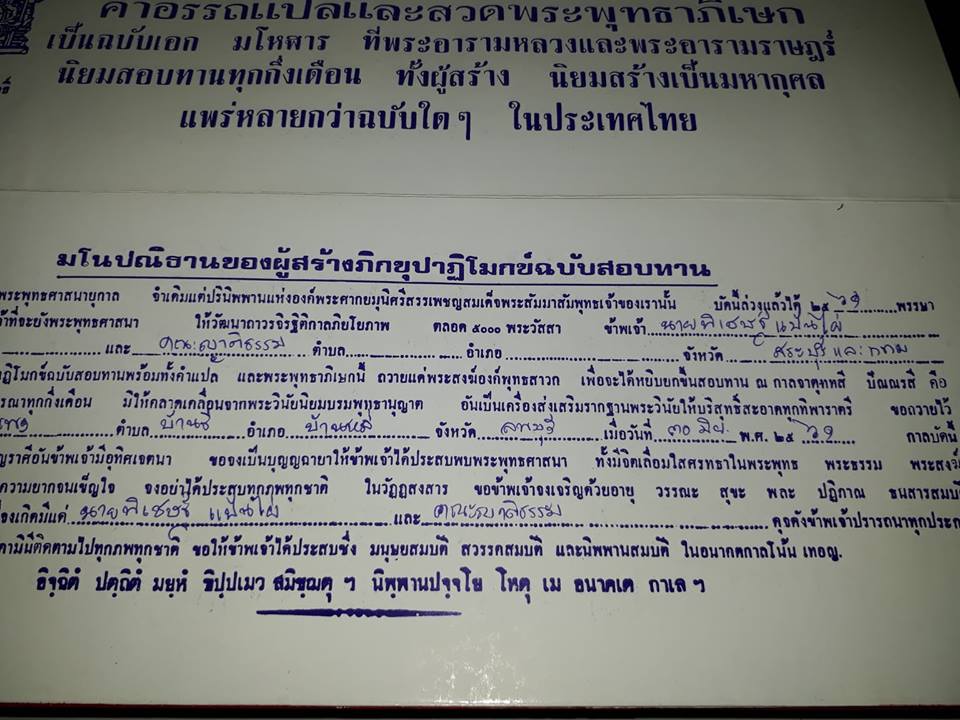 คำอรรถแปลและสวดพระพุทธาภิเษก
เป็นฉบับเอก มโหฬาร ที่พระอารามหลวงและพระอารามราษฎร์
นิยมสอบทานทุกกึ่งเดือน ทั้งผู้สร้าง นิยมสร้างเป็นมหากุศล
แพร่หลายกว่าฉบับใดๆ ในประเทศไทย
มโนปณิธานของผู้สร้างภิกขุปาฏิโมกข์ฉบับสอบทาน
พระพุทธศาสนายุกาล จำเดิมแต่ปรินิพพานแห่งองค์พระศากยมุนีศรีสรรเพชญสมเด็จพระสัมมาสัมพุทธเจ้าของเรานั้น บัดนี้ล่วงแล้วได้ ๒๕๖๑ พรรษา
ที่จะยังพระพุทธศาสนา ให้วัฒนาถาวรจิรฐิติกาลภิยโยภาพ ตลอด ๕๐๐๐ พระวัสสา ข้าพเจ้า นายพิเชษฐ์ แป้นไผ่
และ คณะญาติธรรม ตำบล อำเภอ จังหวัด สระบุรี และ กทม
ปาฏิโมกข์ฉบับสอบทานพร้อมทั้งคำแปล และพระพุทธาภิเษกนี้ ถวายแด่พระสงฆ์องค์พุทธสาวก เพื่อจะได้หยิบยกขึ้นสอบทาน ณ กาลจาตุททสี ปัณณรสี คือ
ทุกกึ่งเดือน มิให้คลาดเคลื่อนจากพระวินัยนิยมบรมพุทธานุญาต อันเป็นเครื่องส่งเสริมรากฐานพระวินัยให้บริสุทธิ์สะอาดทุกทิพาราตรี ขอถวายไว้
ตำบล บ้านชี อำเภอ บ้านหมี่ จังหวัด ลพบุรี เมื่อวันที่ ๓๐ มิย. พ.ศ. ๒๕๖๑ กาลบัดนี้
ราศีอันข้าพเจ้ามีอุทิศเจตนา ขอจงเป็นบุญญฉายาให้ข้าพเจ้าได้ประสบพบพระพุทธศาสนา ทั้งมีจิตเลื่อมใสศรทธาในพระพุทธ พระธรรม พระสงฆ์
ความยากจนเข็ญใจ จงอย่าได้ประสบทุกภพทุกชาติ ในวัฏฏสงสาร ขอข้าพเจ้าจงเจริญด้วยอายุ วรรณะ สุขะ พละ ปฏิภาณ ธนสารสมบัติ
จงเกิดมีแด่ นายพิเชษฐ์ แป้นไผ่ และ คณะญาติธรรม ดุจดังข้าพเจ้าปรารถนาทุกประการ
ตามนี้ติดตามไปทุกภพทุกชาติ ขอให้ข้าพเจ้าได้ประสบซึ่ง มนุษยสมบัติ สวรรคสมบัติ และนิพพานสมบัติ ในอนาคตกาลโน้น เทอญ.
อิจฺฉิตํ ปตฺถิตํ มยฺหํ ขิปฺปเมว สมิชฺฌตุ ฯ นิพฺพานปจฺจโย โหตุ เม อนาคเต กาเล ฯ